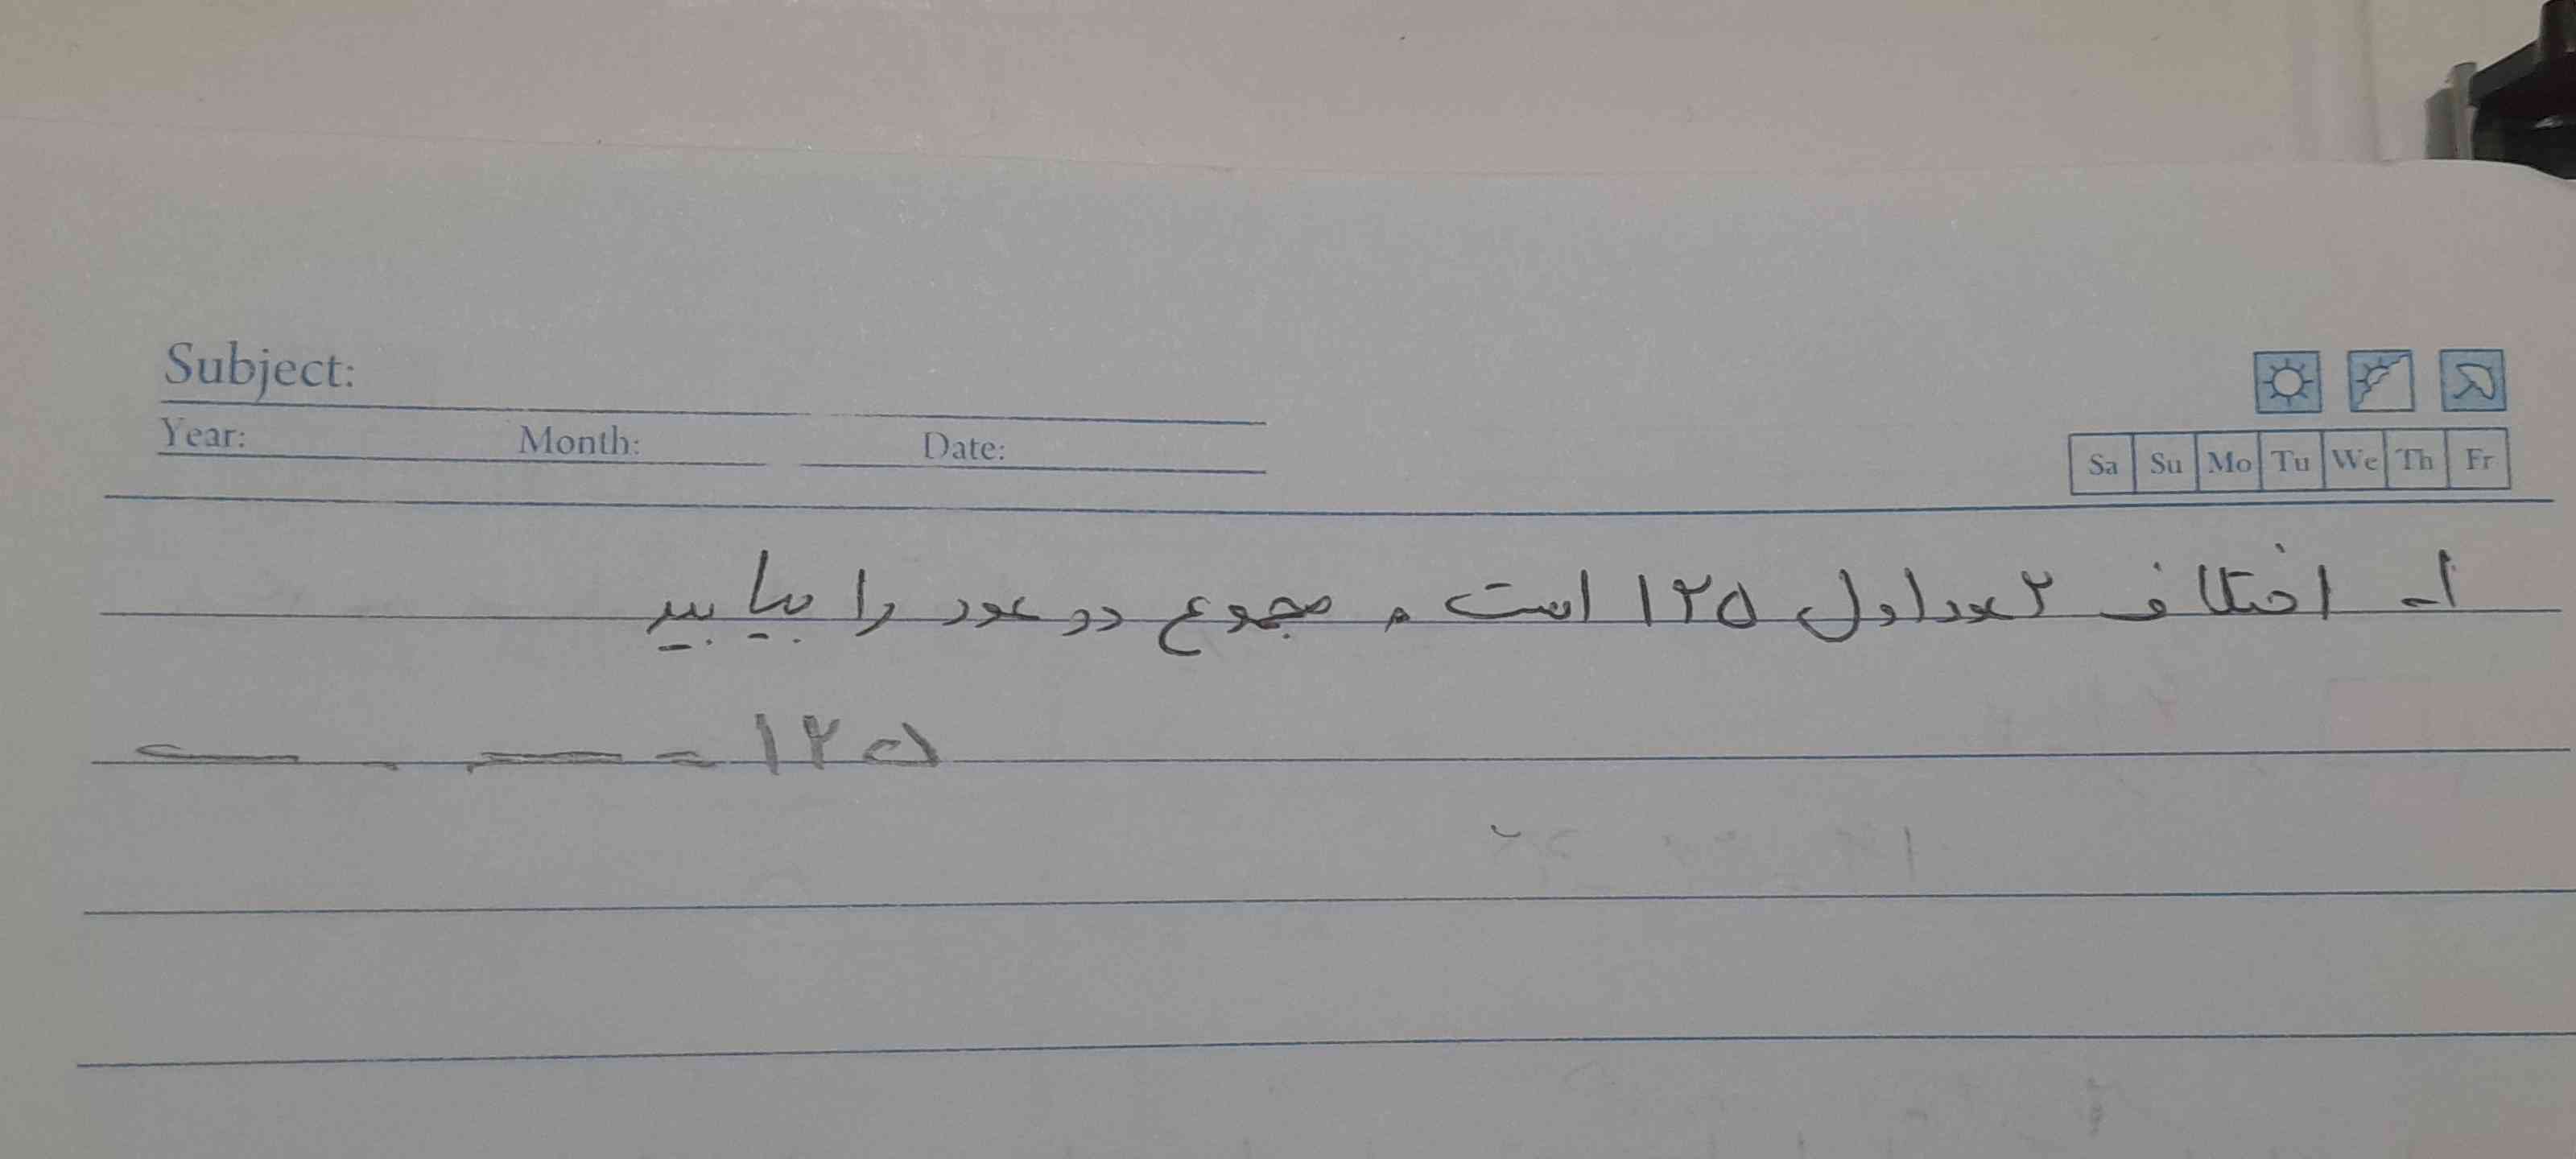 Subject:
Year: Month: Date:
Sa Su Mo Tu We Th Fr
۱- اختلاف ۲ عدد اول ۱۲۵ است، مجموع دو عدد را بیابید
— - — = ۱۲۵